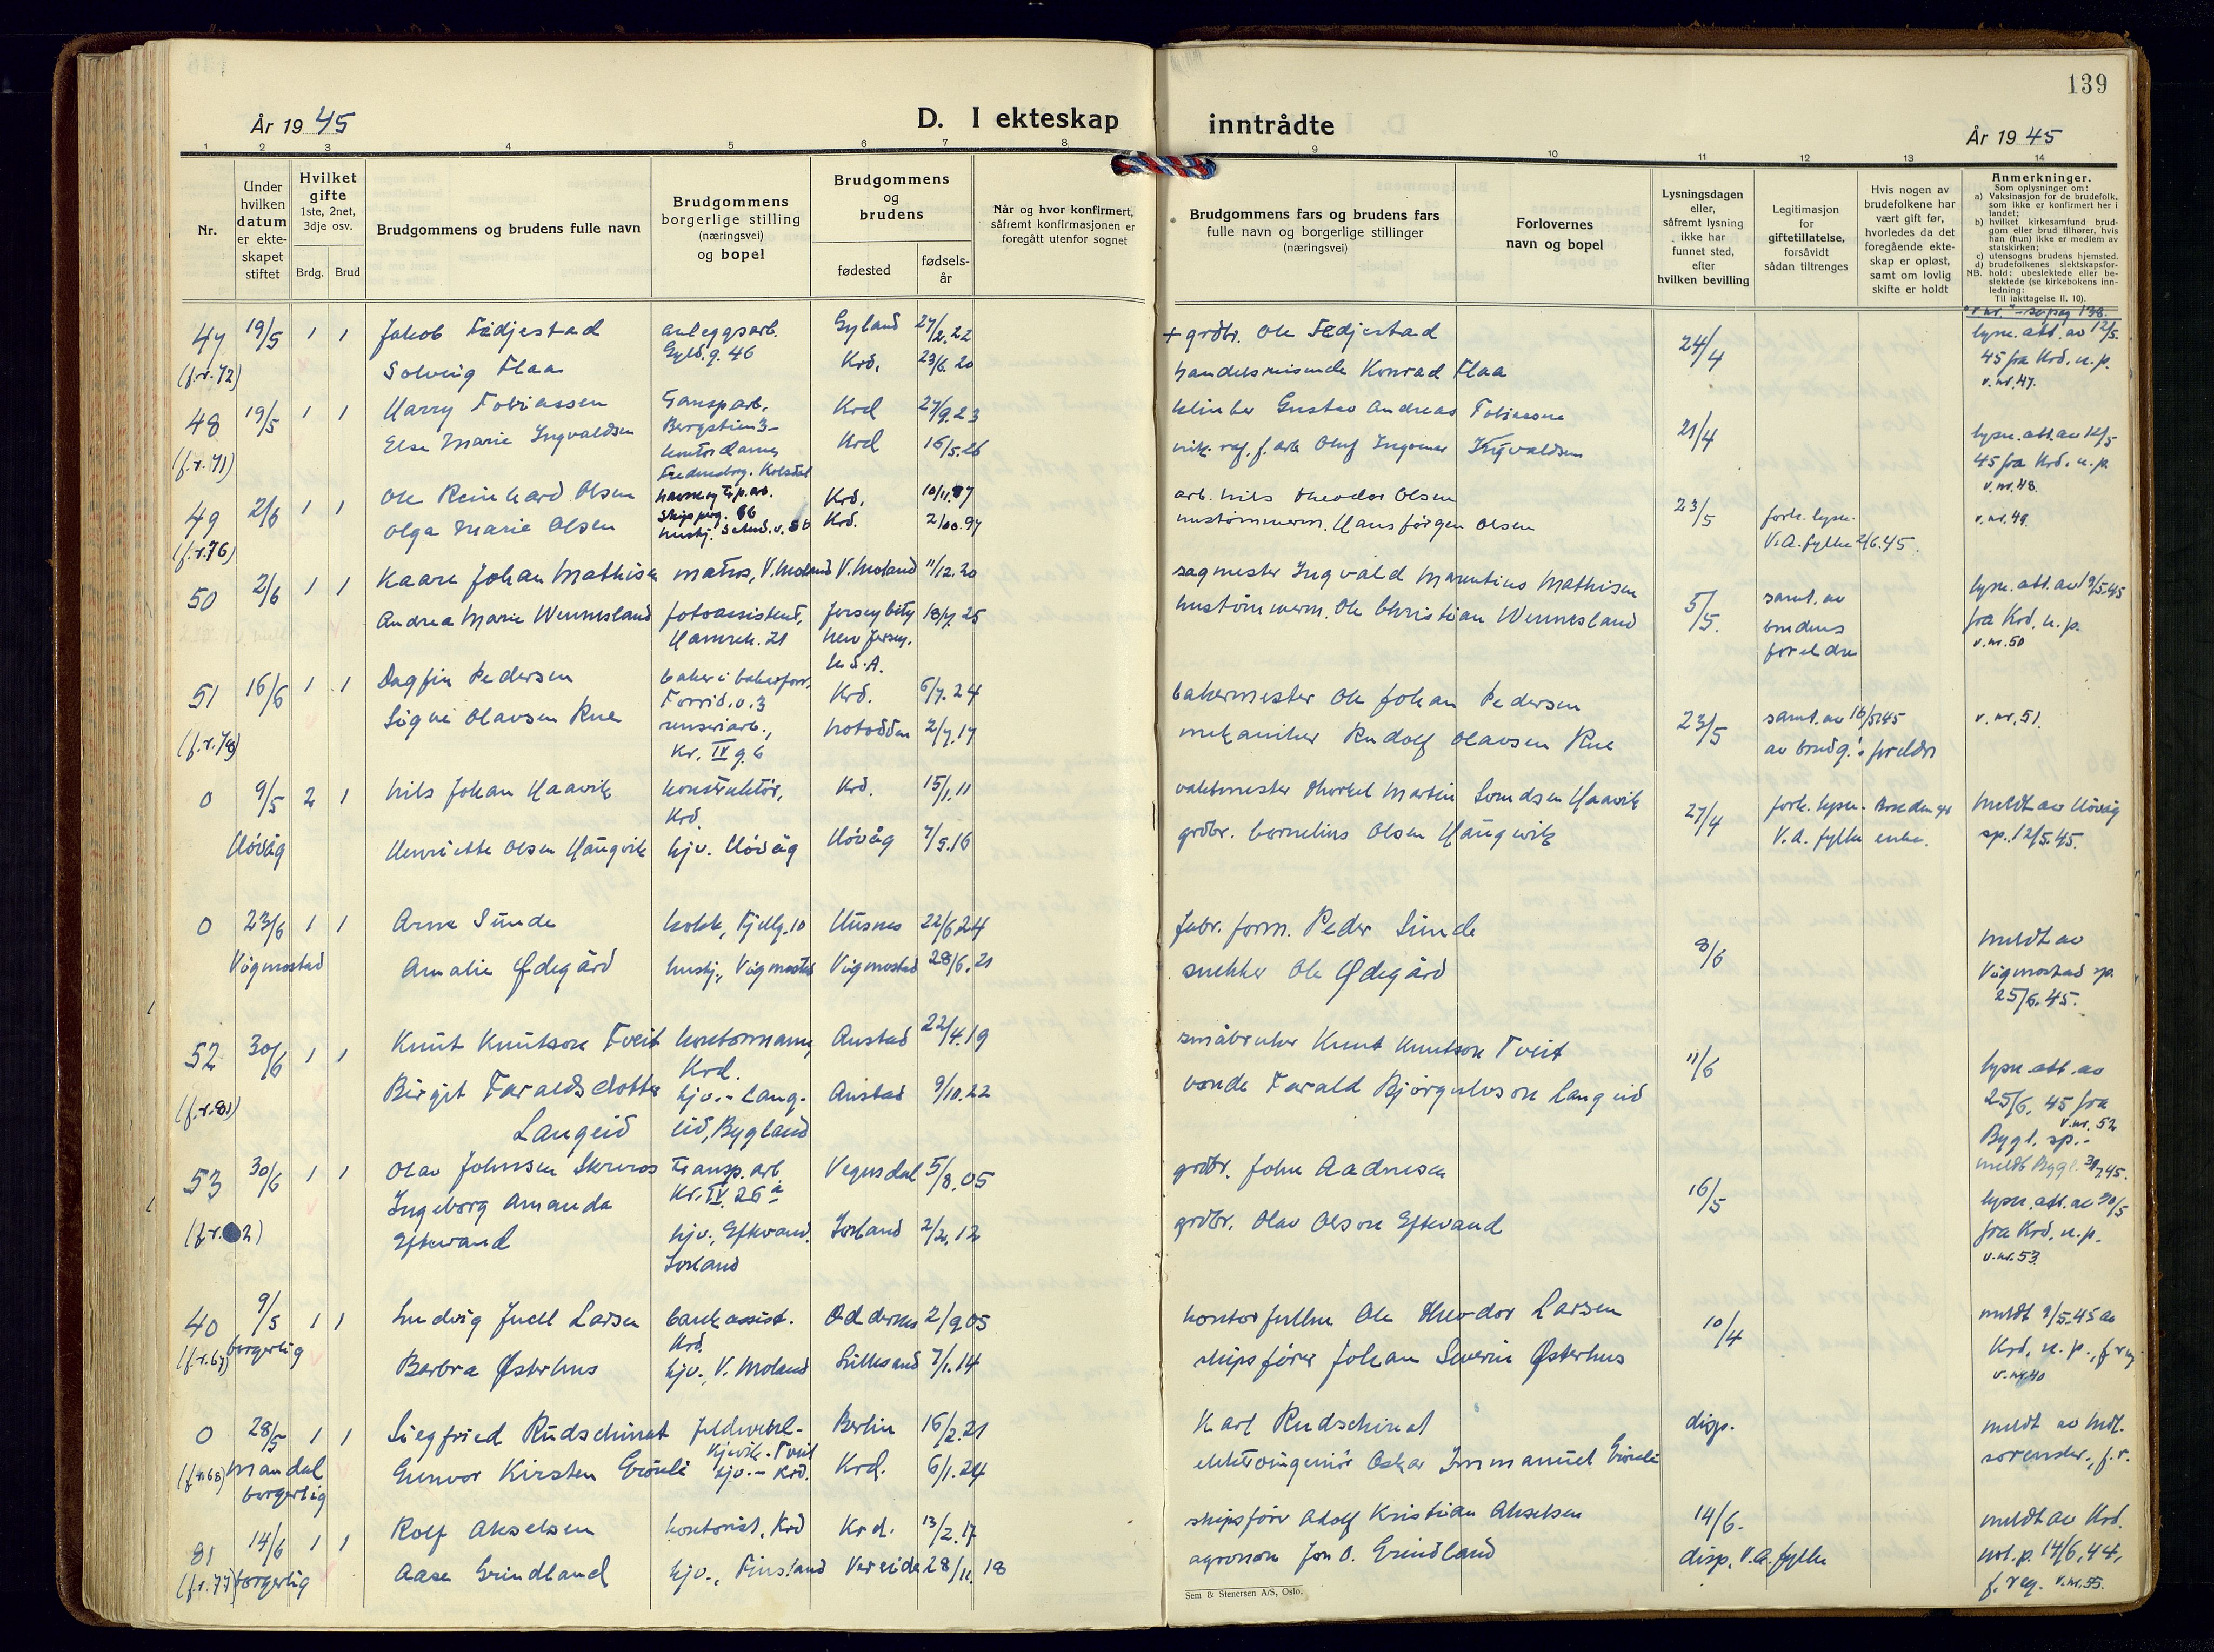 139
År 1945
D. I ekteskap
inntrådte
År 1945
1 2 3 4 5 6 7 8 9 10 11 12 13 14
Nr.
Under
hvilken
datum
er ekte-
skapet
stiftet
Hvilket
gifte
1ste, 2net,
3dje osv.
Brdg. Brud
Brudgommens og brudens fulle navn
Brudgommens
borgerlige stilling
(næringsvei)
og bopel
Brudgommens
og
brudens
fødested
fødsels-
år
Når og hvor konfirmert,
såfremt konfirmasjonen er
foregått utenfor sognet
Brudgommens fars og brudens fars
fulle navn og borgerlige stillinger
(næringsvei)
Forlovernes
navn og bopel
Lysningsdagen
eller,
såfremt lysning
ikke har
funnet sted,
efter
hvilken bevilling
Legitimasjon
for
giftetillatelse,
forsåvidt
sådan tiltrenges
Hvis nogen av
brudefolkene har
vært gift før,
hvorledes da det
foregående ekte-
skap er opløst,
samt om lovlig
skifte er holdt
Anmerkninger.
Som oplysninger om:
a) Vaksinasjon for de brudefolk,
som ikke er konfirmert her i
landet;
b) hvilket kirkesamfund brud-
gom eller brud tilhører, hvis
han (hun) ikke er medlem av
statskirken;
c) utensogns brudens hjemsted.
d) brudefolkenes slektskapsfor-
hold: ubeslektede eller be-
slektede (se kirkebokens inn-
ledning:
Til iakttagelse II. 10).
47 19/5 1 1 Jakob Fedjestad anleggsarb. Gyland 27/2.22 + grdbr. Ole Fedjestad 24/4 lysn. att. av 12/5.
(f.r. 72) Solveig Flaa Gyld. g. 46 Krd. 23/6.20 handelsreisende Konrad Flaa 45 fra Krd. u. p.
v. nr. 47.
48 19/5 1 1 Harry Tobiassen Transp. arb. Krd 27/9.23 Gustav Andreas Tobiassen 21/4 lysn. att. av 12/5
(f.r. 71) Else Marie Ingvaldsen kontordame, Krd 16/5.26 nik. raf. f. arb Oluf Ingomar Ingvaldsen 45 fra Krd. u. p.
v. nr. 48.
49 2/6 1 1 Ole Reinhard Olsen Krd. 10/11.87 arb. Nils Theodor Olsen 23/5 forh. lysn. v. nr. 49.
(f.r. 76) Olga Marie Olsen Krd. hustømmerm. Hans Jørgen Olsen V. A. fylke 2/6.45.
50 2/6 1 1 Kaare Johan Mathisen matros, V. Moland V. Moland 11/12.20 sagmester Ingvald Marentius Mathisen 5/5. samt. av lysn. att. av 19/5.45
Andrea Marie Wennesland fotoassistent, Jersey City 18/7.25 hustømmerm. Ole Christian Wennesland brudens fra Krd. u. p.
Hamreh. 21 New Jersey, foreldre v. nr. 50
U. S. A.
51 16/6 1 1 Dagfin Pedersen baker i bakerforr. Krd. 6/7.24 bakermester Ole Johan Pedersen 23/5 samt. av 16/5.45 v. nr. 51.
Signe Olavsen Rue renseriarb., Notodden 2/7.17 mekaniker Rudolf Olavsen Rue av brudg.s foreldre
Kr. IV g. 6
0 9/5 2 1 Nils Johan Haavik konstruktør, Krd. 15/1.11 vaktmester Thorkel Martin Haavik 27/4 forh. lysn. meldt av Høvåg
Krd. V. A. fylke enke. sp. 12/5.45.
Høvåg Henriette Olsen Haugvik hjv. Høvåg Høvåg 7/5.16 grdbr. Cornelius Olsen Haugvik
0 23/6 1 1 Arne Sunde kokk, Fjellg. 10 Husnes 22/6.24 fabr. form. Peder Sunde 8/6 meldt av
Vigmostad Amalie Ødegård hushj., Vigmostad Vigmostad 28/6.21 snekker Ole Ødegård Vigmostad sp.
25/6.45.
52 30/6 1 1 Knut Knutson Tveit kontormann, Austad 22/4.19 småbruker Knut Knutson Tveit 11/6 lysn. att. av
Krd. 25/6.45 fra
(f.r. 80) Birgit Taraldsdotter hjv. - Lang- Austad 9/10.22 bonde Tarald Bjørgulvson Langeid v. nr. 52
Langeid eid, Bygland Bygl. sp. -
53 30/6 1 1 Olav Johnsen Skreros Transp. arb. Vegusdal 5/8.05 grdbr. John Aadnesen 16/5 meldt Bygl.
Ingeborg Amanda Kr. IV. 26 a lysn. att. av 30/5
Eftevand hjv., Eftevand, Iveland 2/2.12 grdbr. Olav Olson Eftevand fra Krd. u. p.
Iveland v. nr. 53.
40 9/5 1 1 Ludvig Juell Larsen bankassist. Oddernes 2/9.05 kontorfullm. Ole Theodor Larsen 10/4 meldt 9/5.45 av
(f.r. 67) borgerlig Krd. Krd. u. p., f. reg
Barbra Østerhus hjv., V. Moland Lillesand 7/1.14 skipsfører Johan Severin Østerhus v. nr. 40
0 28/5 1 1 Siegfried Rudschinat Berlin 16/2.21 Karl Rudschinat disp. meldt av Mdl.
(f.r. 68) Mandal Kjevik - Tveit sorenskr., f. r.
borgerlig Gunvor Kirsten hjv. - Krd. Krd. 6/1.24 elektroingeniør Oskar Immanuel
81 14/6 1 1 Rolf Akselsen kontorist, Krd Krd. 13/2.17 skipsfører Adolf Kristian Akselsen 14/6. meldt av Krd.
(f.r. 77) borgerlig Aase Grindland hjv., Finsland Vereide 28/11.18 agronom Jon O. Grindland disp. V. A. fylke not. p. 14/6.44,
f. reg. v. nr. 55.
Sem & Stenersen A/S, Oslo.